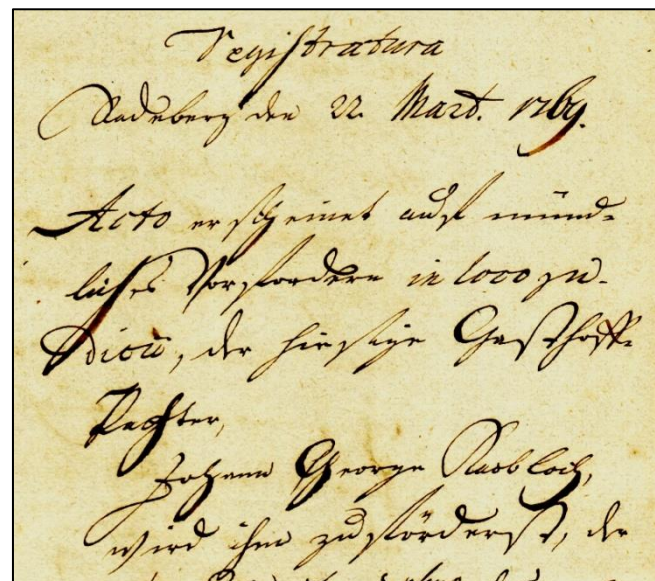 Registratura
Radeberg den 22. Mart. 1769.
Acto erscheinet auf münd-
liches Vorfordern in loco ju-
dicii, der hiesige Gasthoff-
Pachter,
Johann George
wird ihm zuförderst, der